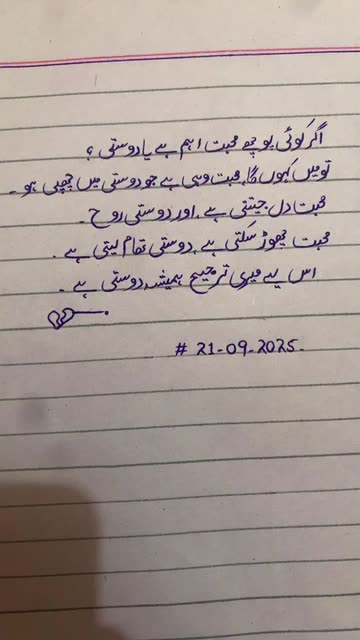 اگر کوئی پوچھے محبت اہم ہے یا دوستی ؟
تو میں کہوں گا، محبت وہی ہے جو دوستی میں چھپی ہو۔
محبت دل جیتتی ہے، اور دوستی روح۔
محبت چھوڑ سکتی ہے، دوستی تھام لیتی ہے۔
اس لیے میری ترجیح ہمیشہ دوستی ہے۔
# 21-09-2025.